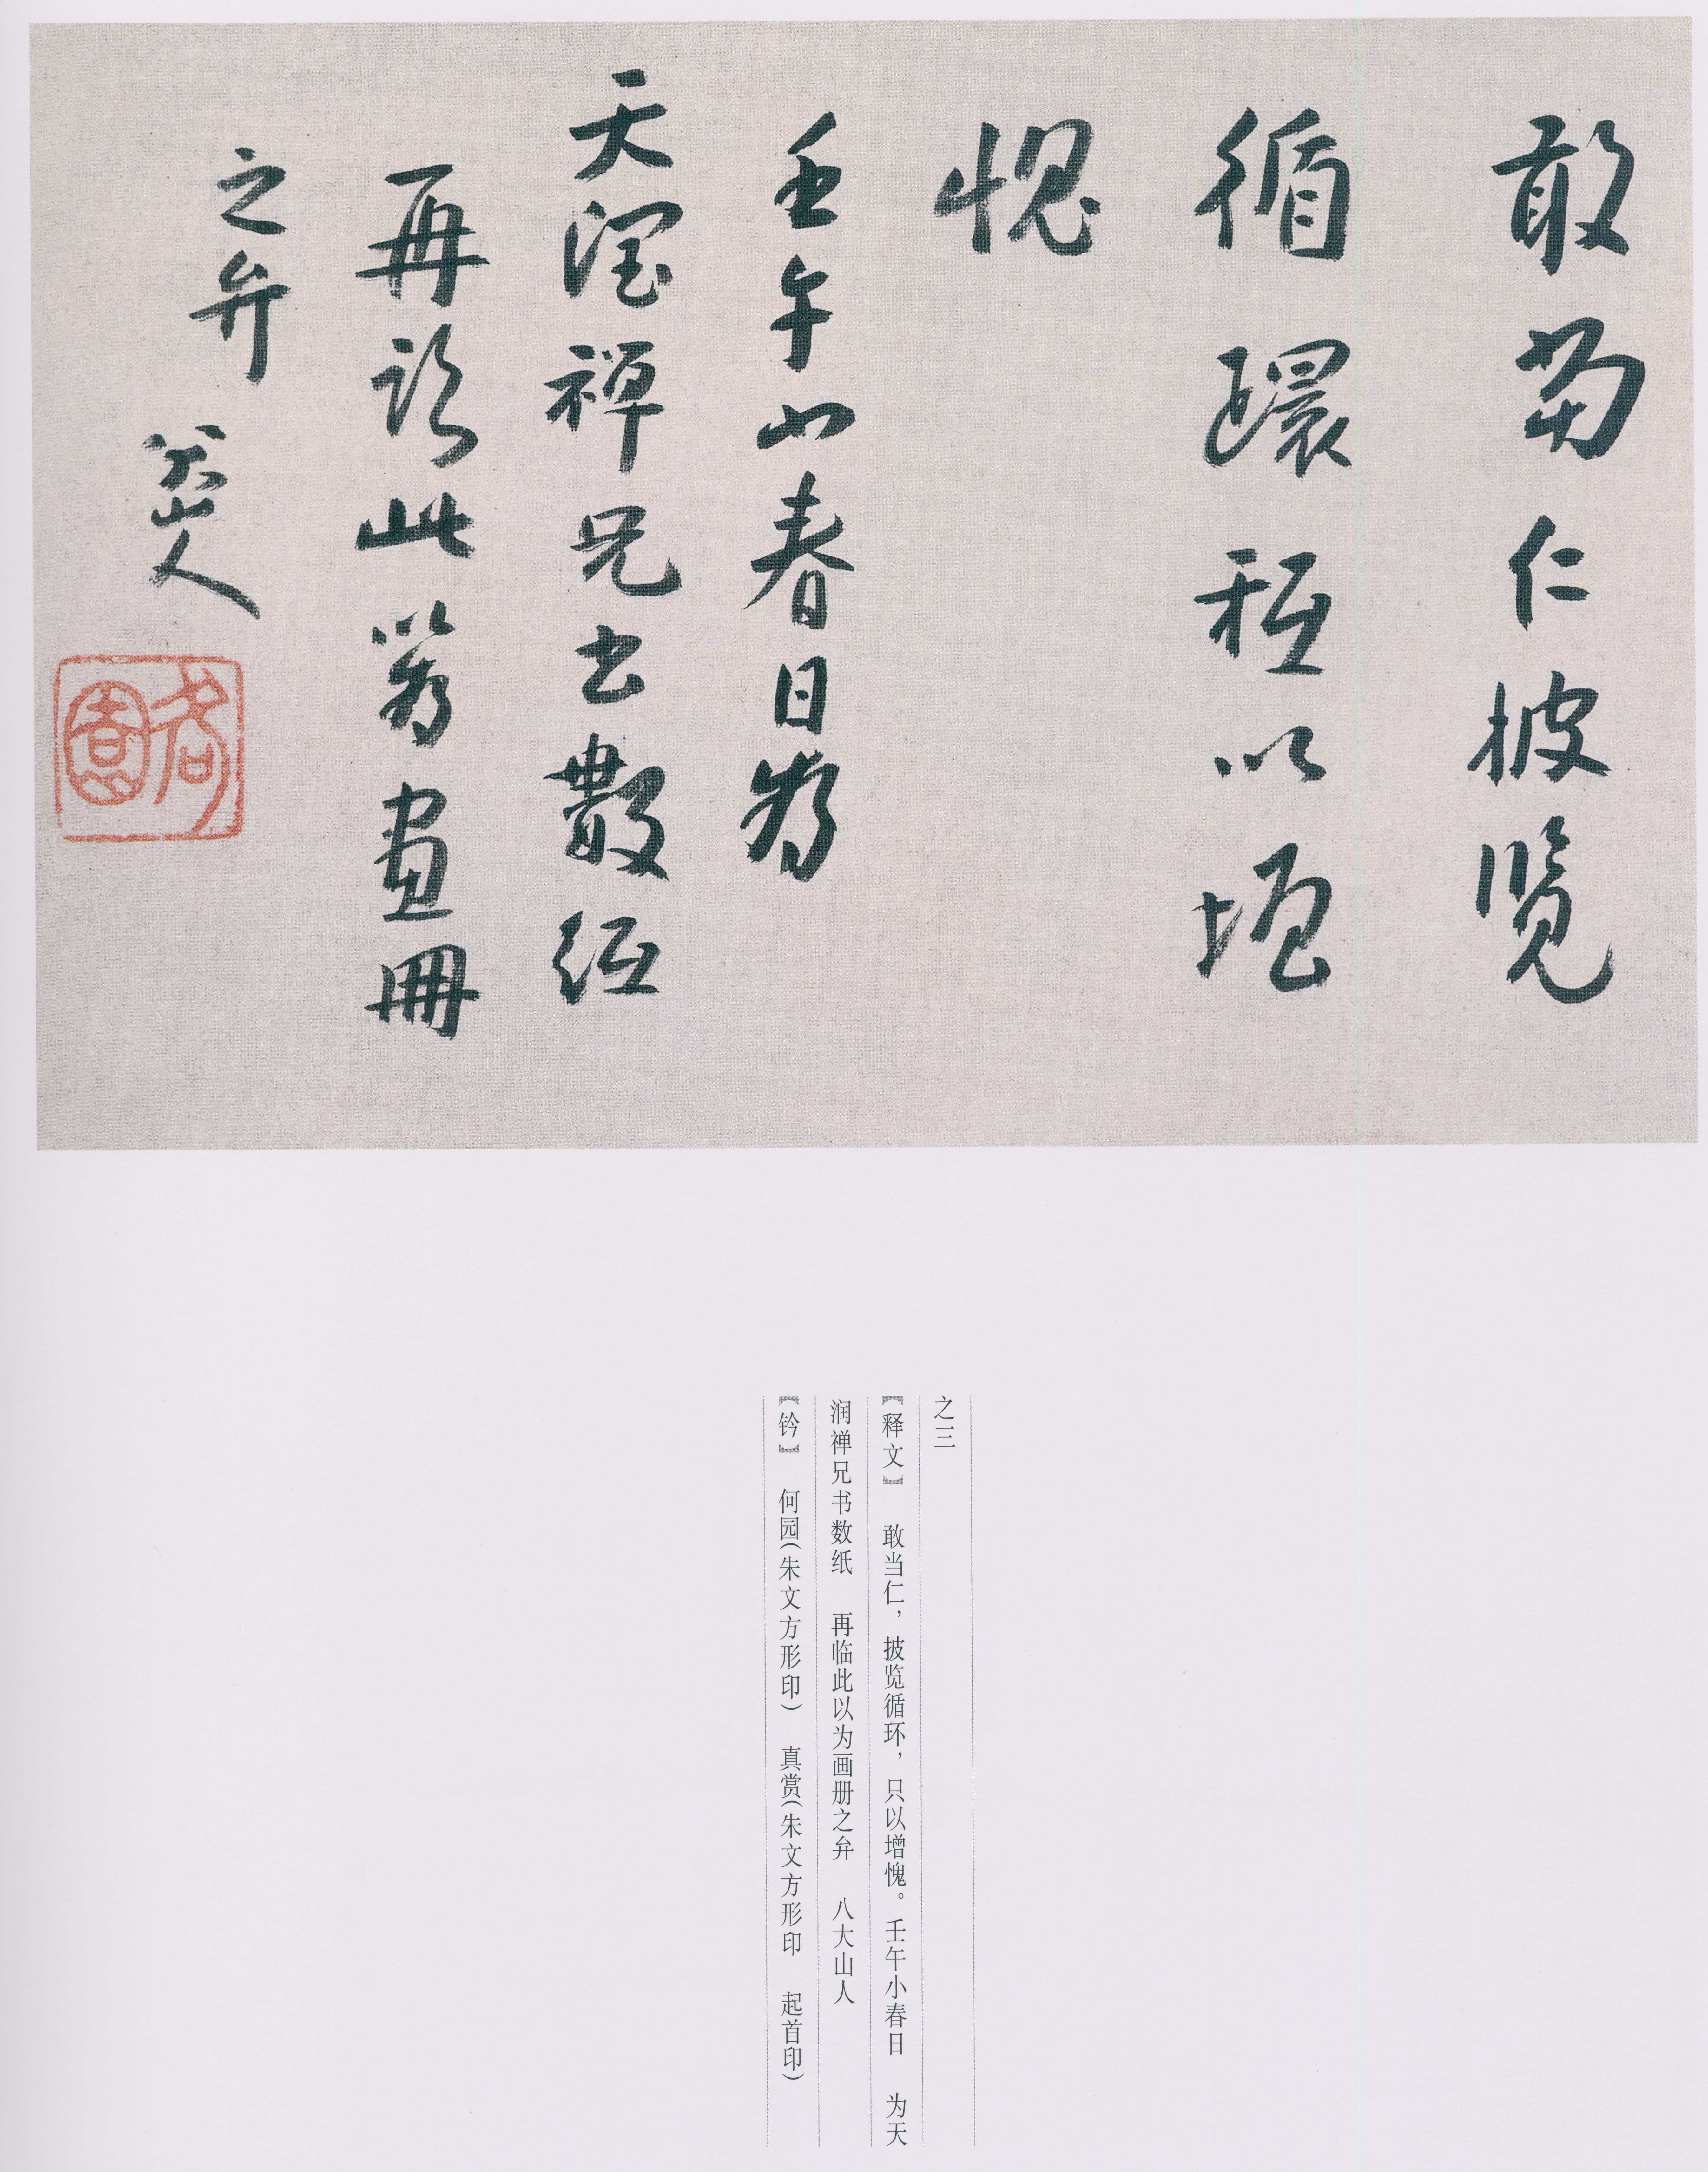 敢當仁披覽
循環秖以增
愧
壬午小春日為
天潤禪兄書數紙
再臨此以為畫冊
之弁 八大山人
何園
之三
【释文】 敢当仁，披览循环，只以增愧。壬午小春日 为天
润禅兄书数纸 再临此以为画册之弁 八大山人
【钤】 何园（朱文方形印） 真赏（朱文方形印 起首印）